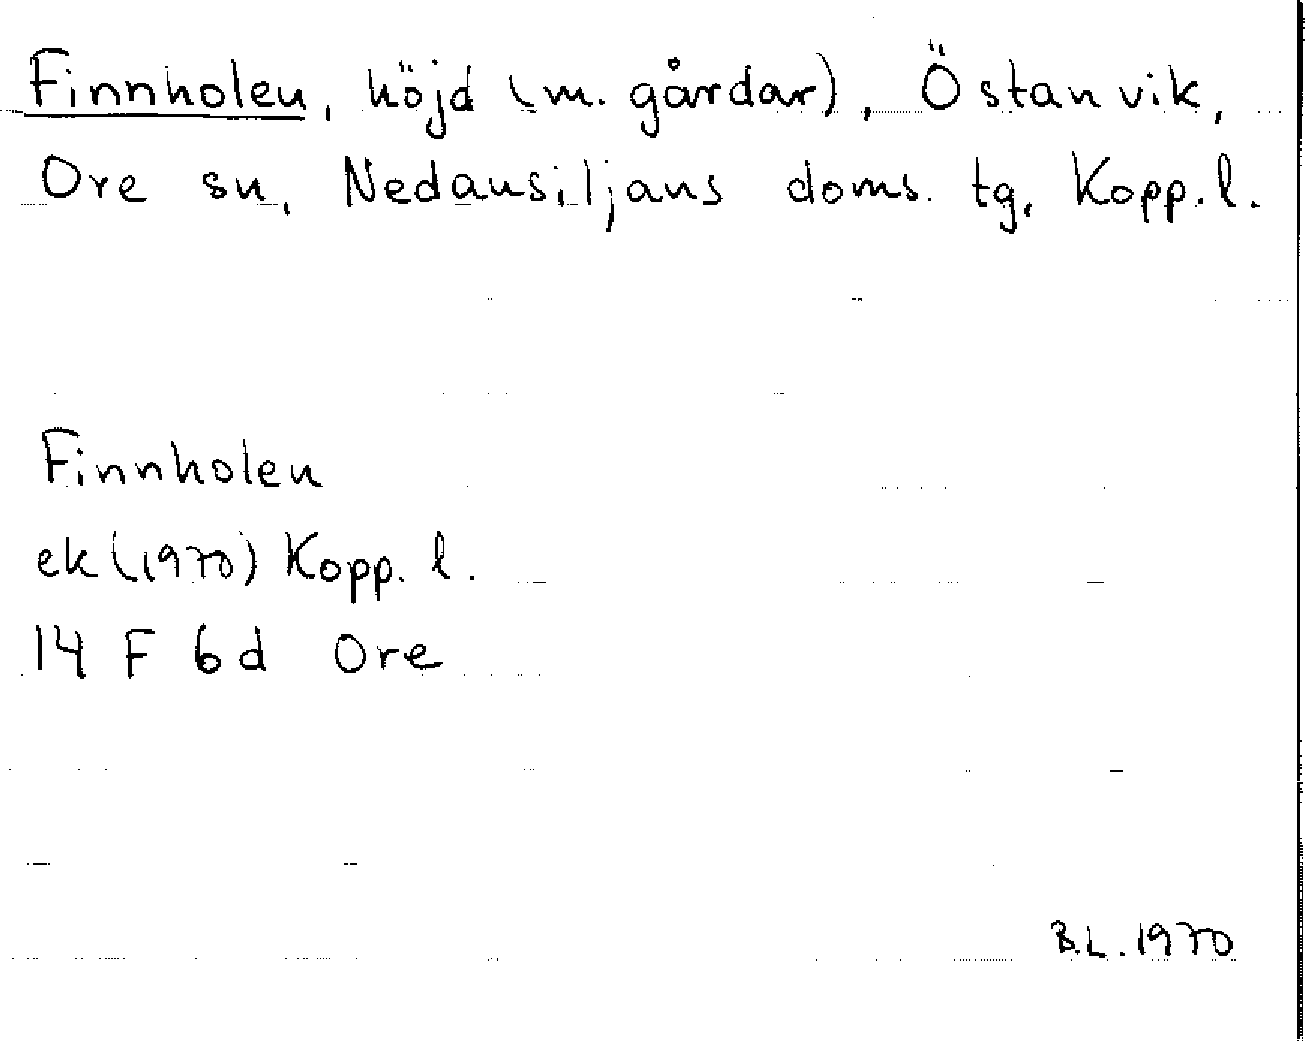 Finnholen, höjd (m. gårdar), Östanvik,
Ore sn, Nedansiljans doms. tg, Kopp. l.
Finnholen
ek (1970) Kopp. l.
14 F 6 d Ore
B.L. 1970